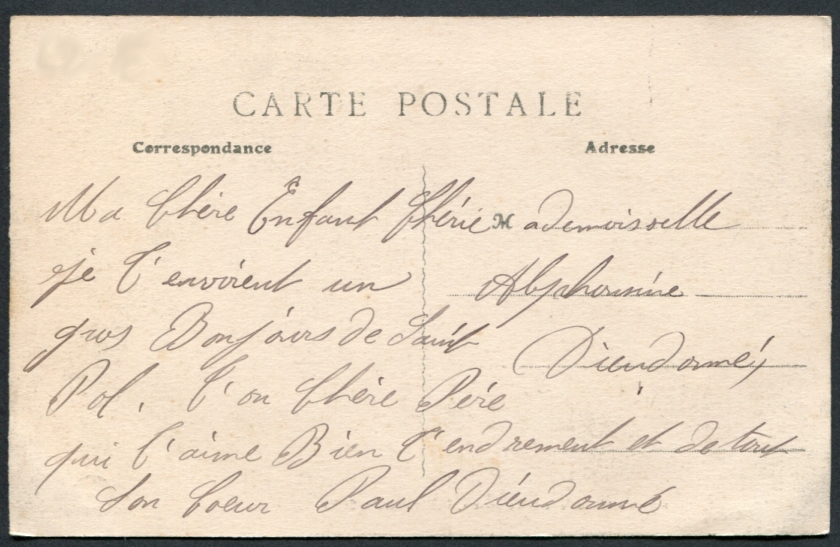 CARTE POSTALE
Correspondance
Adresse
Ma Chère Enfant Chérie
je t'envoient un
gros Bonjours de Saint
Pol. t'on Chère Père
qui t'aime Bien t'endrement et de tout
son Coeur Paul Dieudonné
Mademoiselle
Alphonsine
Dieudonné